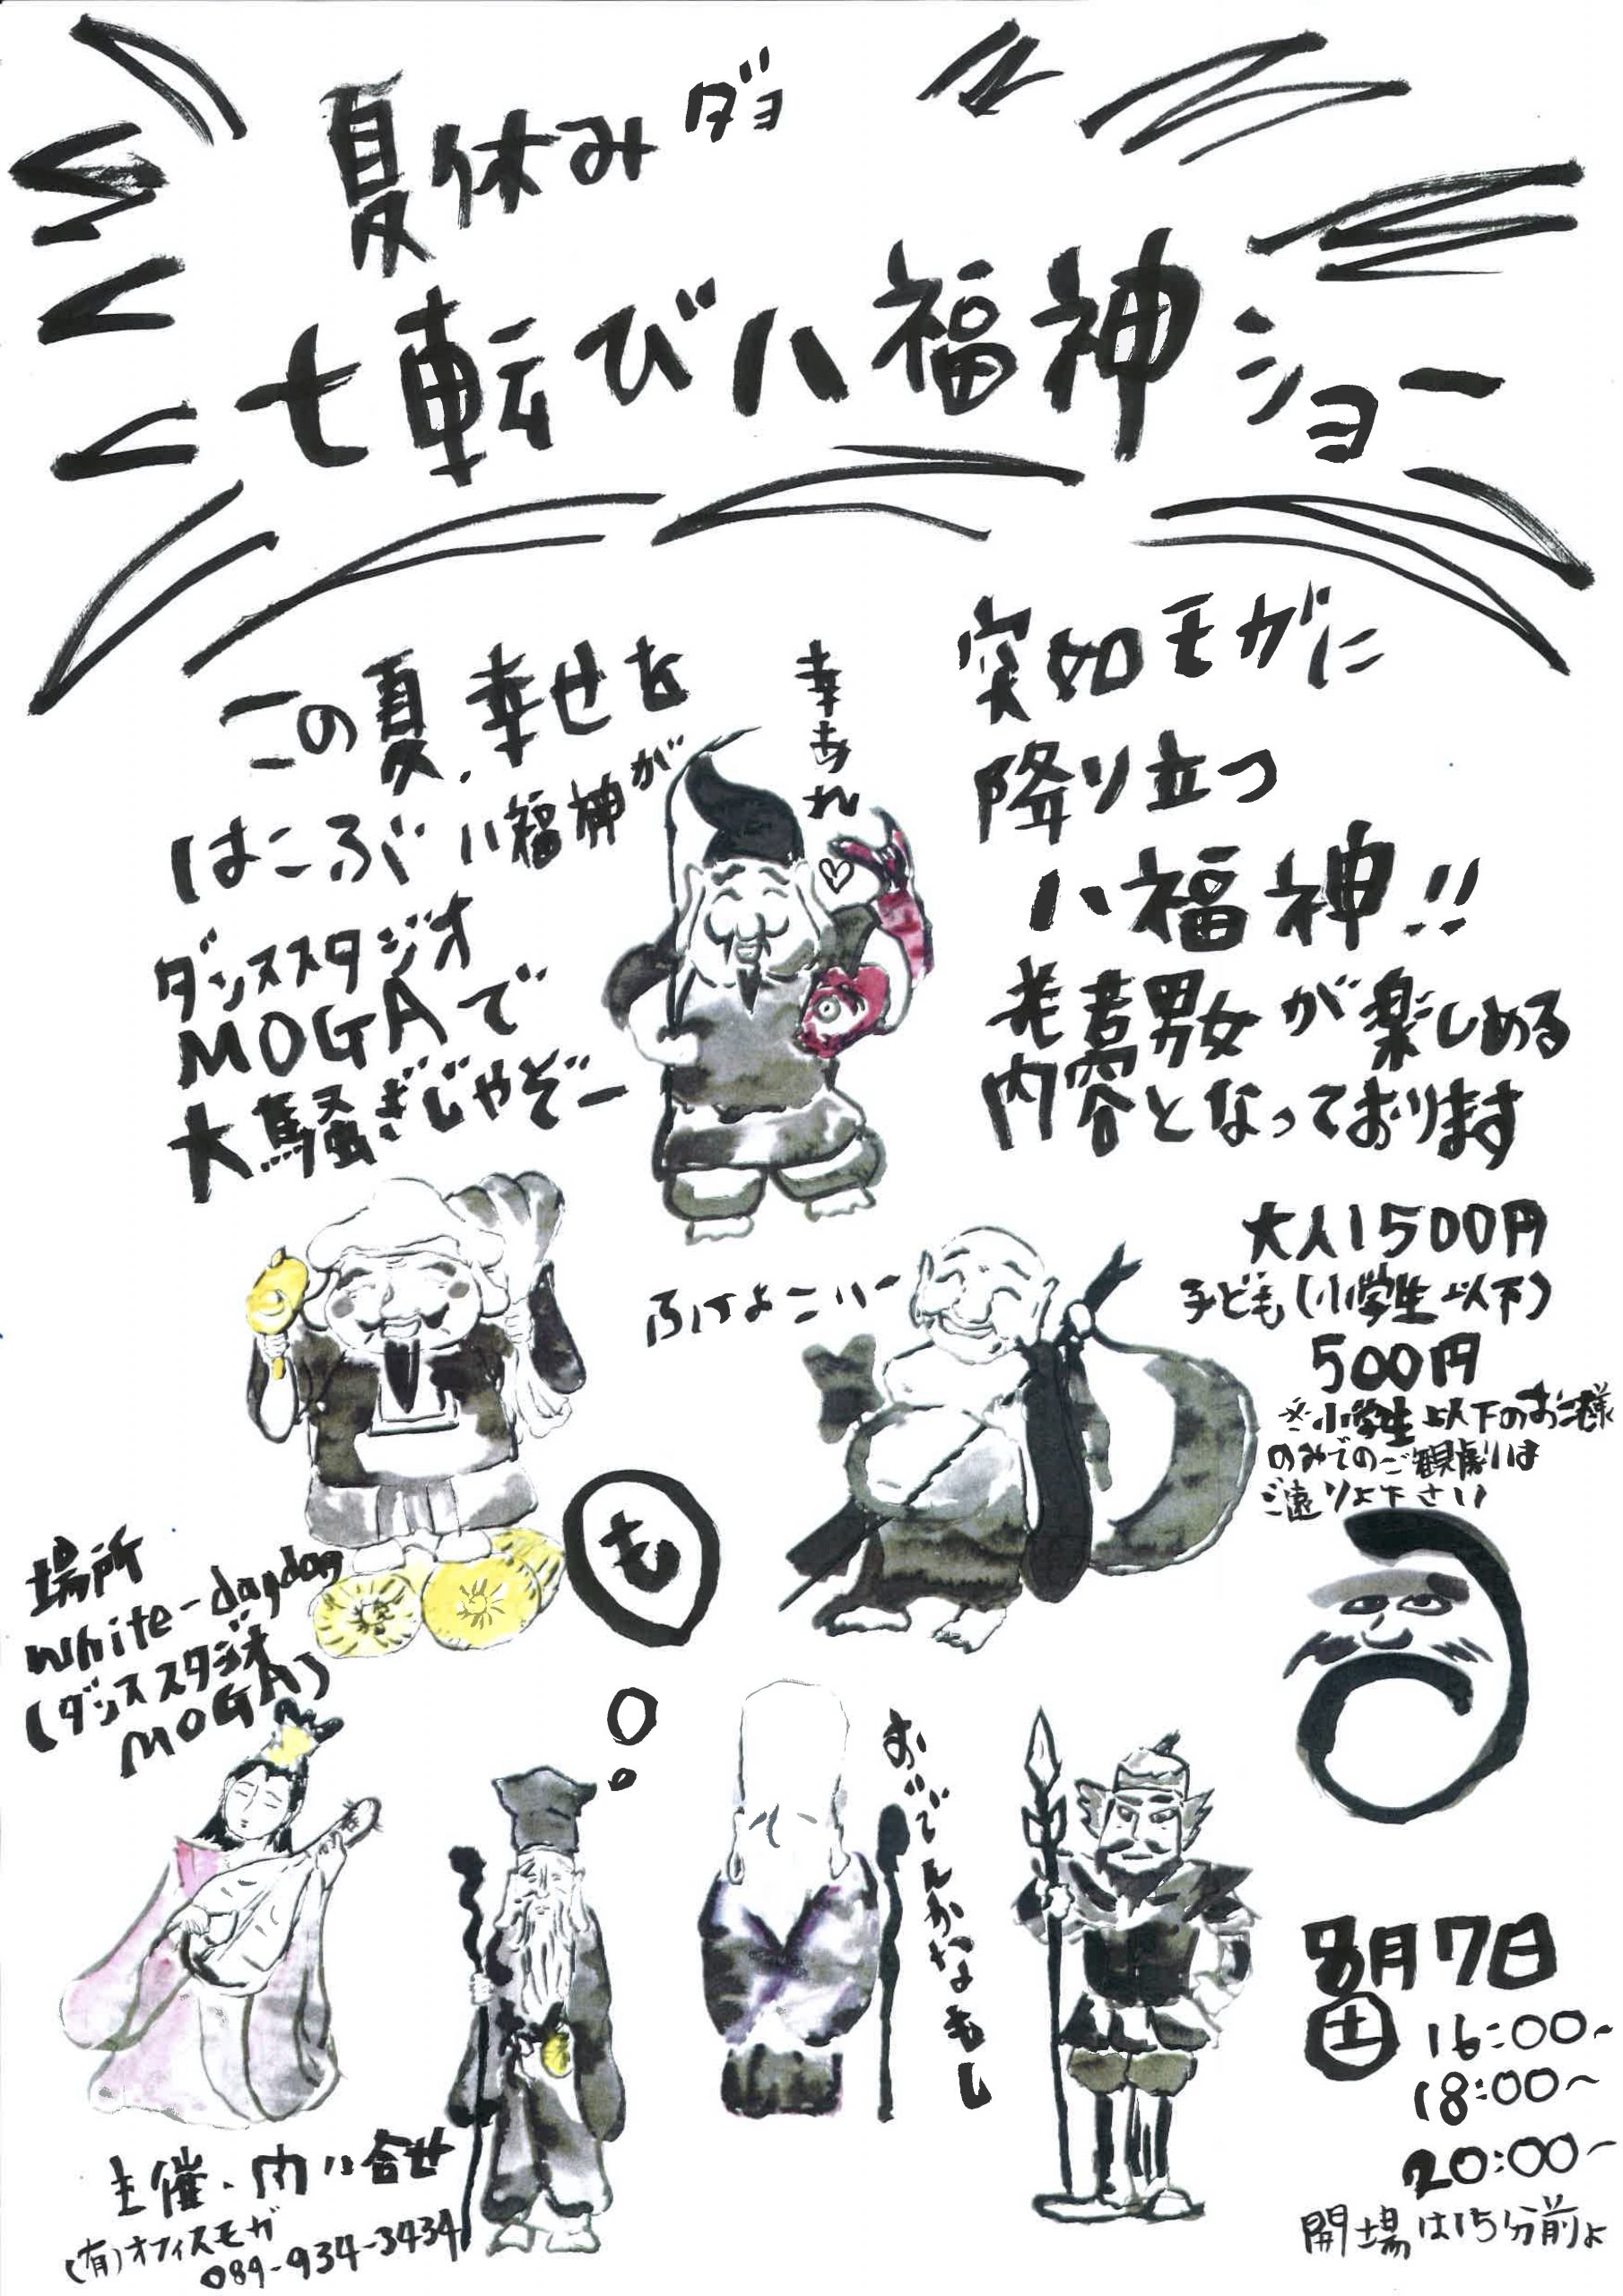 夏休みダヨ
七転び八福神ショー
この夏、幸せを
はこぶ 八福神が
ダンススタジオ
MOGAで
大騒ぎじゃぞー
幸あれ
突如モガに
降り立つ
八福神!!
老若男女が楽しめる
内容となっております
大人1500円
子ども(小学生以下)
500円
※小学生以下のお子様
のみでのご観劇は
ご遠りょ下さい
ふけよこいー
も
場所
white-dagdag
(ダンススタジオ
MOGA)
おいでんかなもし
8月7日
土 16:00~
18:00~
20:00~
開場は15分前よ
主催・問い合せ
(有)オフィスモガ
089-934-3434